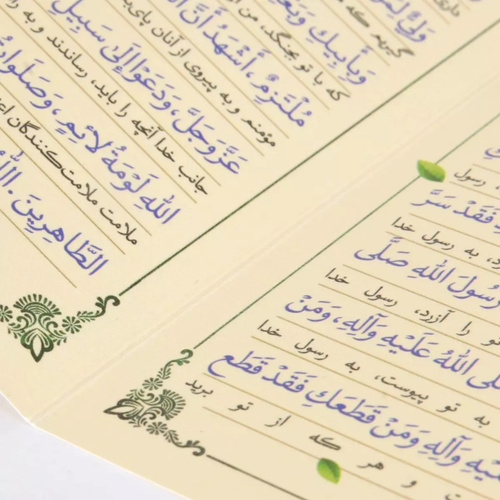 وَلِيُّ
گیرم که
وَبِأَبِيكِ وَبَعْ
که با تو بجنگد، من از
مُلْتَزِمٌ، أَشْهَدُ أَنَّ
مؤمنم و به پیروی از آنان پای‌ب
عَزَّ وَجَلَّ، وَدَعَوْا إِلَى سَبِيلِ
جانب خدا آنچه را باید، رساندند و به را
اللهِ لَوْمَةُ لَائِمٍ، وَصَلَوَاتُ
ملامت ملامت‌کنندگان
الطَّاهِرِينَ. اللّٰ
رسول
فَقَدْ سَرَّ
به رسول خدا
رَسُولَ اللهِ صَلَّى
تو را آزرد، رسول خدا
لَّى اللهُ عَلَيْهِ وَآلِهِ، وَمَنْ
به تو پیوست، به رسول خدا
عَلَيْهِ وَآلِهِ وَمَنْ قَطَعَكِ فَقَدْ قَطَعَ
و هر که از تو برید